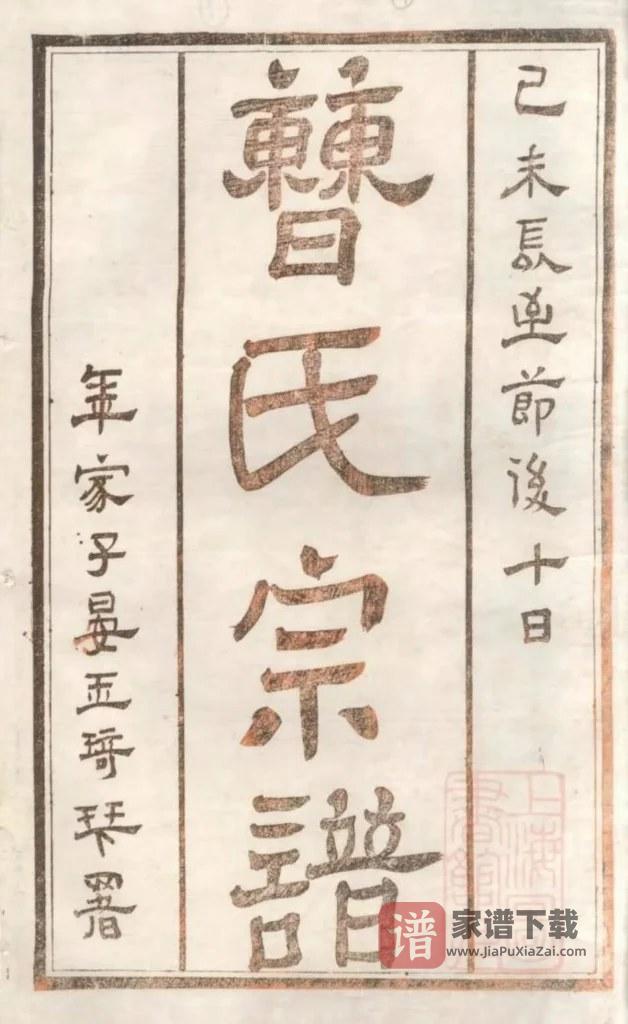 己未長至節後十日
曹氏宗譜
年家子晏五琦琹署
上海圖書館藏
谱 家谱下载
www.JiaPuXiaZai.com